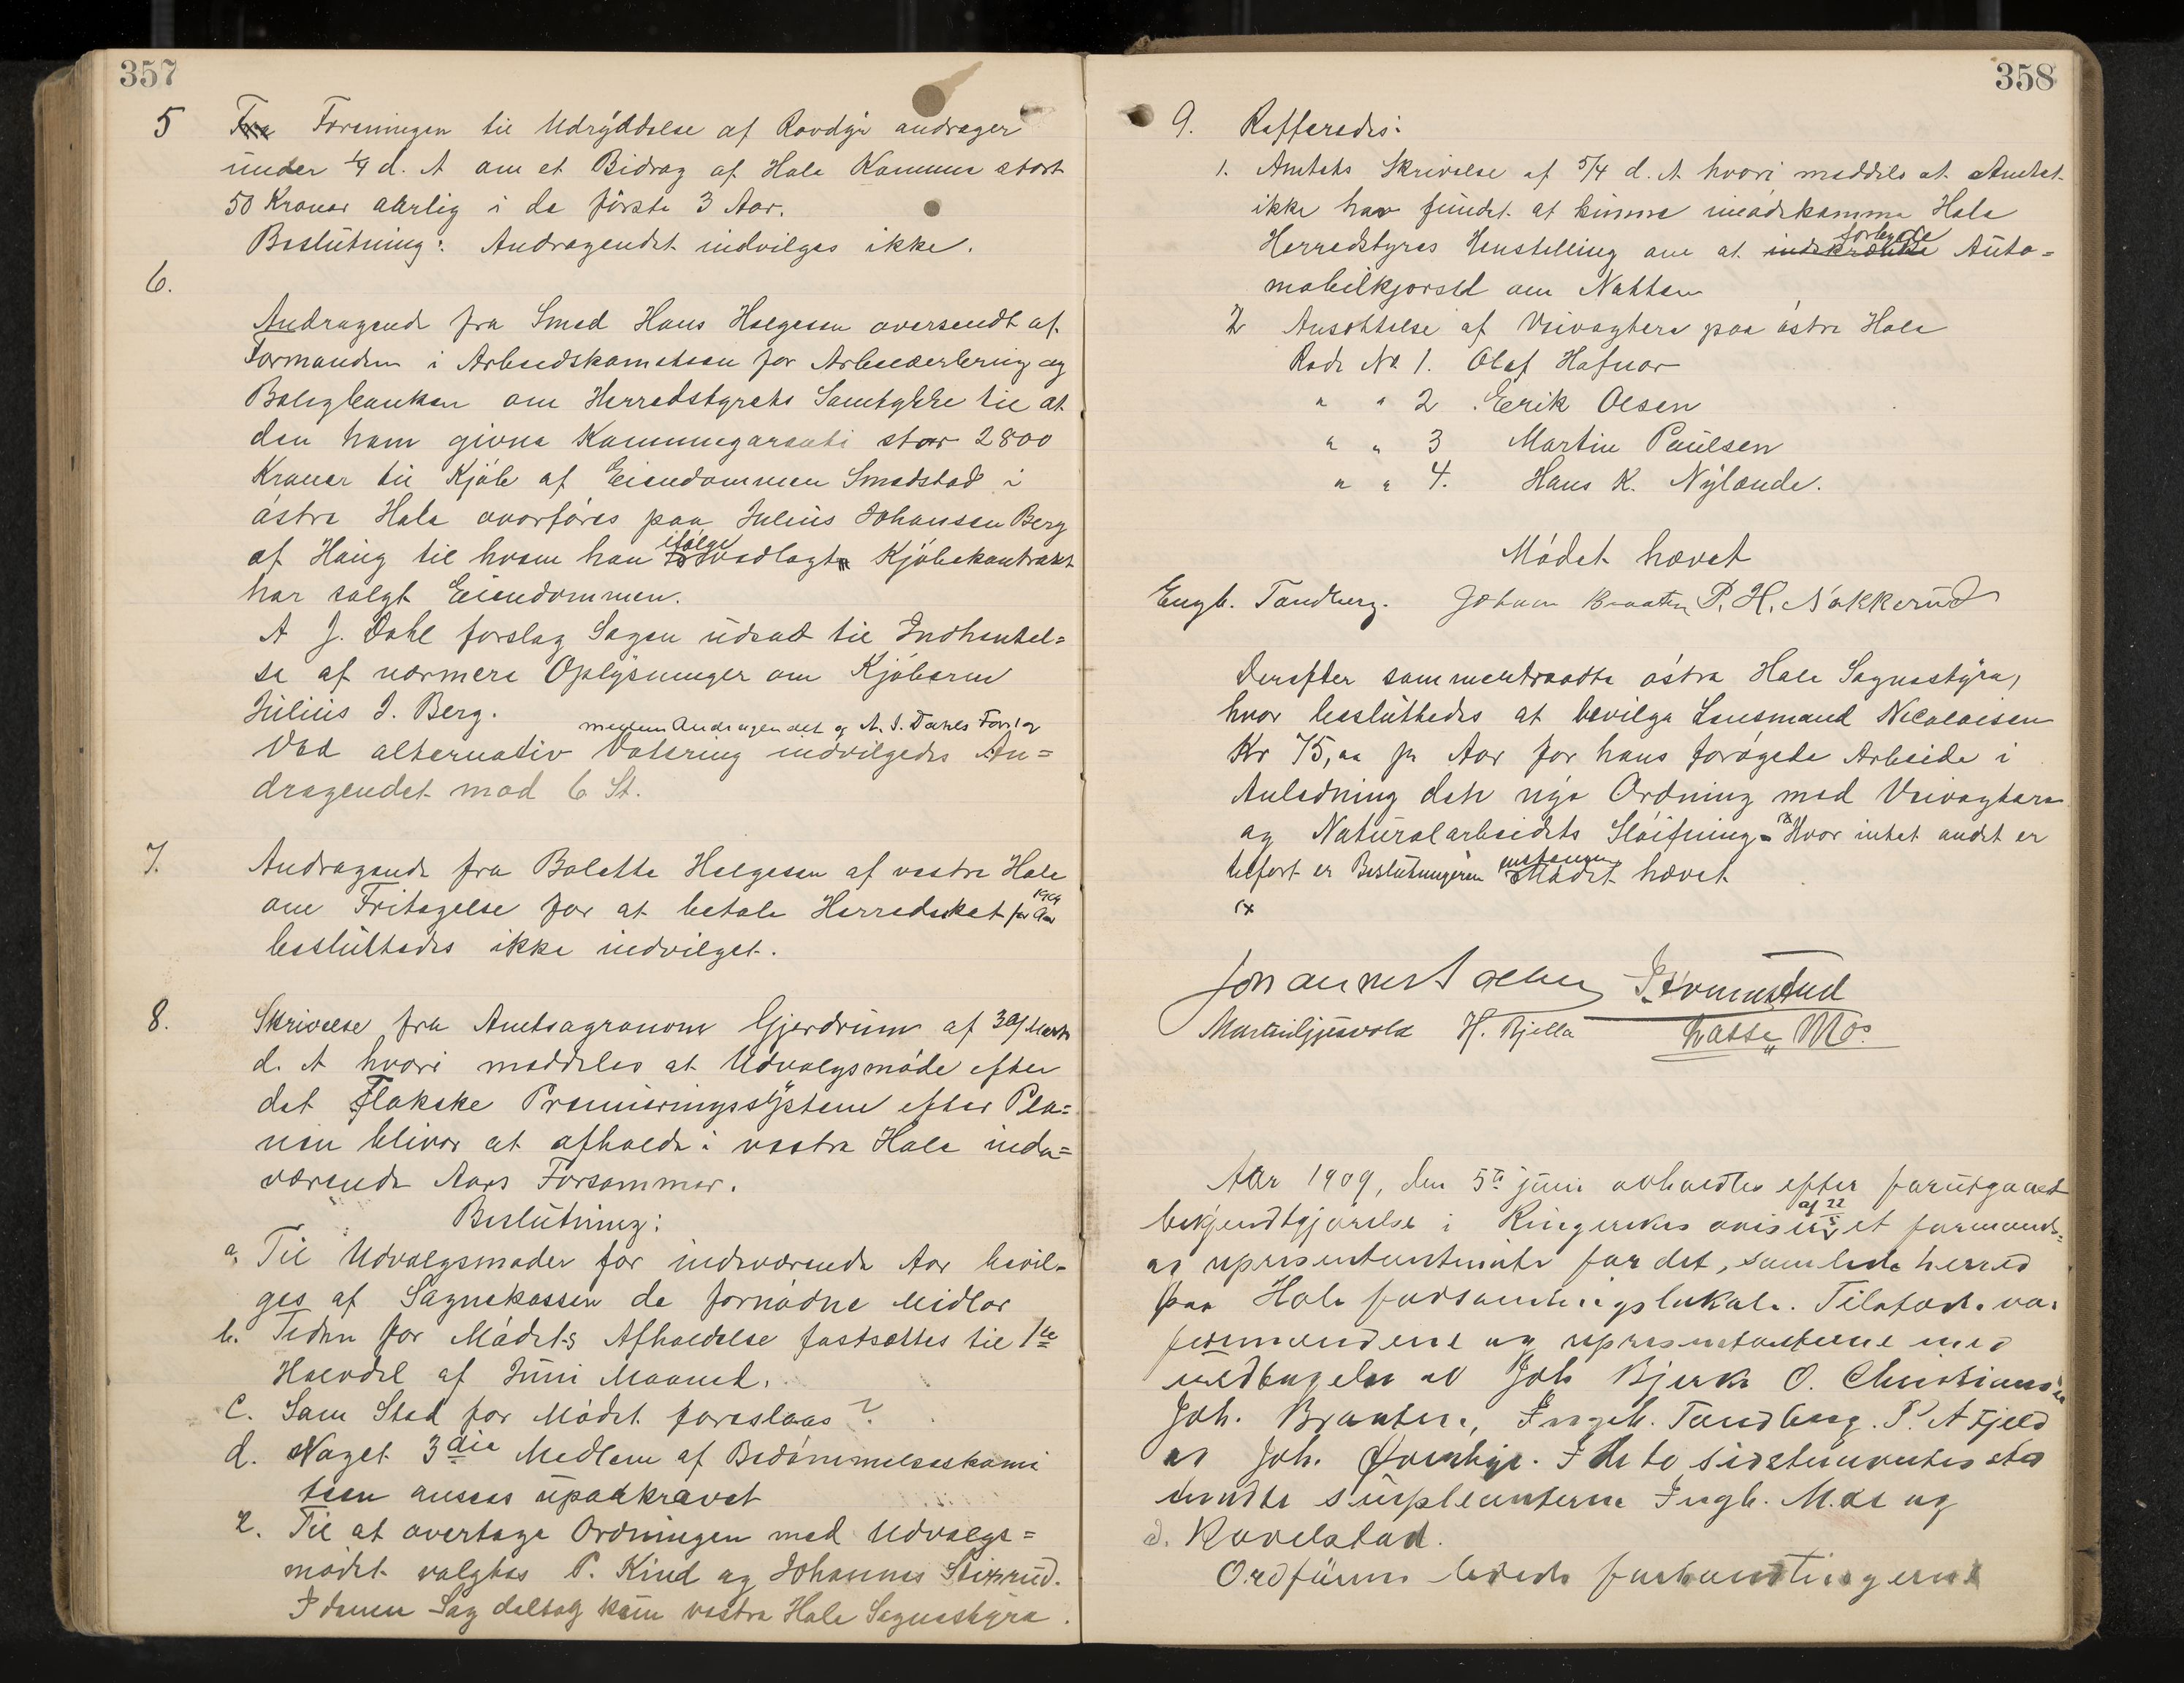 357
5 Fra Foreningen til Udryddelse af Rovdyr andrager
under 1/4 d. A om et Bidrag af Hole Kommune stort
50 Kroner aarlig i de förste 3 Aar.
Beslutning: Andragendet indvilges ikke.
6.
Andragende fra Smed Hans Helgesen oversendt af
Formanden i Arbeidskometeen for Arbeider og
Boligbanken om Herredstyrets Samtykke til at
den ham givne Kommunegaranti stor 2800
Kroner til Kjöb af Eiendommen Smedstad i
östre Hole overföres paa Julius Johansen Berg
af Haug til hvem han ifölge vedlagte Kjöbekontrakt
har solgt Eiendommen.
A J. Dahl forslag Sagen udsat til Indhentel=
se af nærmere Oplysninger om Kjöberen
Julius J. Berg.
mellem Andragendet og A. J. Dahls Forslag
Ved alternativ Votering indvilgedes An=
dragendet mod 6 St.
7. Andragende fra Bolette Helgesen af vestre Hole
om Fritagelse for at betale Herredskat for Aar 1909
besluttedes ikke indvilget.
8. Skrivelse fra Amtsagronom Gjerdrum af 30/ Marts
d. A hvori meddeles at Udvalgsmöde efter
det Flakske Premieringssystem efter Pla=
nen bliver at afholde i vestre Hole inde=
værende Aars Forsommer.
Beslutning:
a. Til Udvalgsmöder for indeværende Aar bevil=
ges af Sognekassen de fornödne Midler
b. Tiden for Mödets Afholdelse fastsættes til 1ste
Halvdel af Juni Maaned.
c. Som Sted for Mödet foreslaas ?
d. Noget 3die Medlem af Bedömmelseskomi
teen ansees upaakrævet
2. Til at overtage Ordningen med Udvalgs=
mödet valgtes P. Kind og Johannes Stixrud.
I denne Sag deltog kun vestre Hole Sognestyre.
358
9. Refferedes:
1. Amtets Skrivelse af 5/4 d. A hvori meddeles at Amtet
ikke har fundet at kunne imödekomme Hole
Herredstyres Henstilling om at indskrænke forbyde Auto=
mobilkjørsel om Natten
2 Ansættelse af Veivogtere paa östre Hole
Rode No 1. Olaf Hafnor
" " 2 Eerik Olsen
" " 3 Martin Paulsen
" " 4. Hans K. Nylande.
Mödet hævet
Engb. Tandberg. Johan Braaten P. H. Nakkerud
Derefter sammentraadte östre Hole Sognestyre,
hvor besluttedes at bevilge Lensmand Nicolaisen
Kr 75,00 pr Aar for hans forögede Arbeide i
Anledning den nye Ordning med Veivogtere
og Naturalarbeidets Slöifning. Hvor intet andet er
tilfört er Beslutningerne enstemmig Mödet hævet
Martin Gjesvold H. Bjella Lasse Mo.
Aar 1909, den 5te juni avholdtes efter forutgaaet
bekjendtgjörelse i Ringerikes aviser af 22/5 et formands=
og representantmöte for det samlede herred
paa Hole forsamlingslokale. Tilstede var
formændene og representanterne med
undtagelse av Joh Bjerke O. Christiansen
Joh. Braaten, Ingeb. Tandberg. P. A Fjeld
og Joh. . I de to sidstnævntes sted
mødte suppleanterne Ingb. Moe og
Ordføreren ledede forhandlingerne